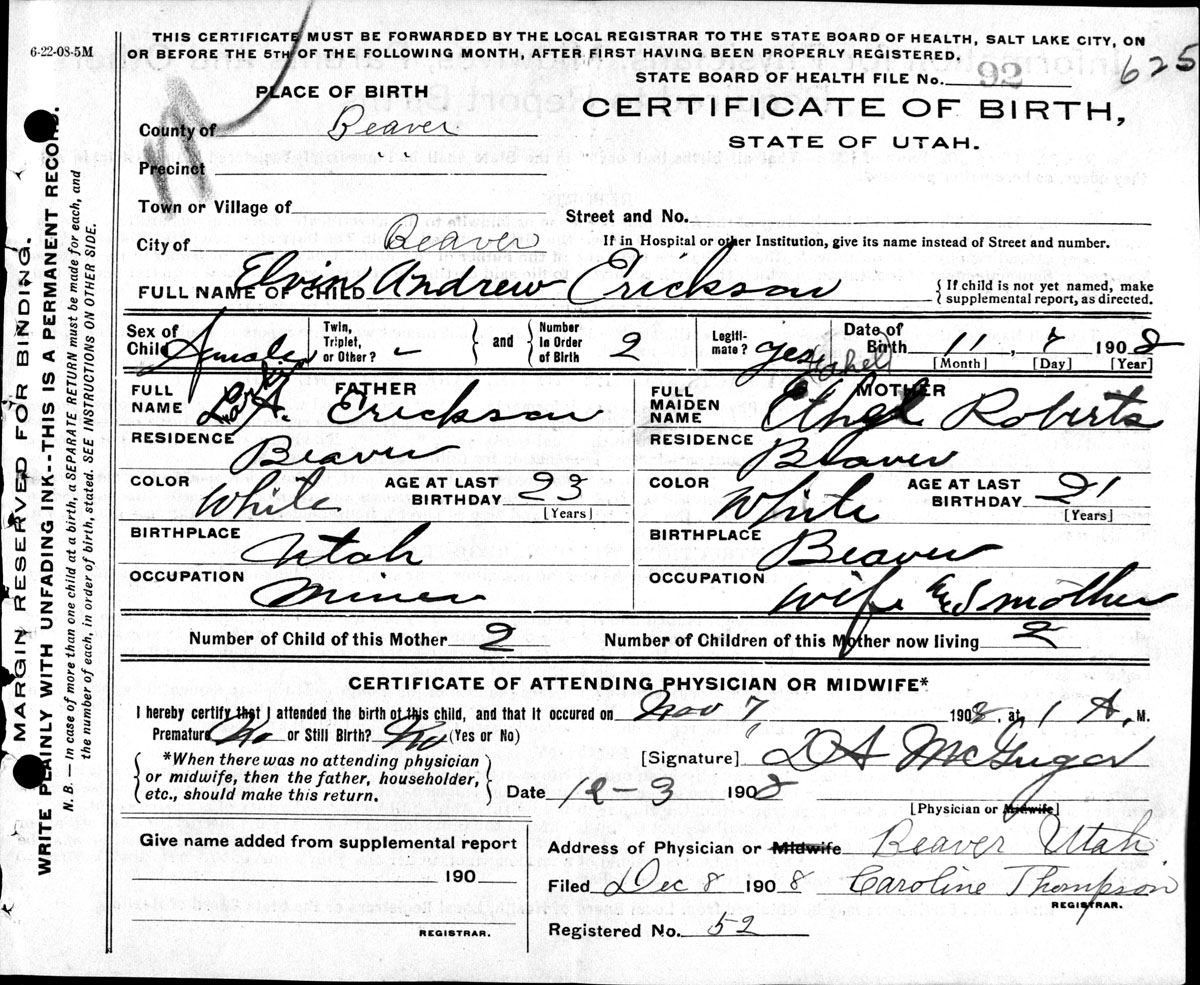 6-22-08-5M
THIS CERTIFICATE MUST BE FORWARDED BY THE LOCAL REGISTRAR TO THE STATE BOARD OF HEALTH, SALT LAKE CITY, ON
OR BEFORE THE 5TH OF THE FOLLOWING MONTH, AFTER FIRST HAVING BEEN PROPERLY REGISTERED.
STATE BOARD OF HEALTH FILE No. 92 625
PLACE OF BIRTH
CERTIFICATE OF BIRTH,
STATE OF UTAH.
County of Beaver
Precinct
Town or Village of
Street and No.
City of Beaver
If in Hospital or other Institution, give its name instead of Street and number.
FULL NAME OF CHILD Elvin Andrew Erickson
{ If child is not yet named, make
supplemental report, as directed.
Sex of Child
Twin, Triplet, or Other?
and
Number in Order of Birth 2
Legiti-mate? yes
Date of Birth 11, 7 1908
[Month] [Day] [Year]
FATHER
FULL NAME A. Erickson
RESIDENCE Beaver
COLOR White
AGE AT LAST BIRTHDAY 23
[Years]
BIRTHPLACE Utah
OCCUPATION Miner
MOTHER
FULL MAIDEN NAME Ethel Roberts
RESIDENCE Beaver
COLOR White
AGE AT LAST BIRTHDAY 21
[Years]
BIRTHPLACE Beaver
OCCUPATION Wife & mother
Number of Child of this Mother 2
Number of Children of this Mother now living 2
CERTIFICATE OF ATTENDING PHYSICIAN OR MIDWIFE*
I hereby certify that I attended the birth of this child, and that it occured on Nov 7 1908, at 1 A. M.
Premature No or Still Birth? No (Yes or No)
*When there was no attending physician
or midwife, then the father, householder,
etc., should make this return.
[Signature] D A McGregor
Date 12-3 1908
[Physician or Midwife]
Give name added from supplemental report
190
REGISTRAR.
Address of Physician or Midwife Beaver Utah
Filed Dec 8 1908 Caroline Thompson
REGISTRAR.
Registered No. 52
MARGIN RESERVED FOR BINDING.
WRITE PLAINLY WITH UNFADING INK--THIS IS A PERMANENT RECORD.
N. B.— In case of more than one child at a birth, a SEPARATE RETURN must be made for each, and
the number of each, in order of birth, stated. SEE INSTRUCTIONS ON OTHER SIDE.